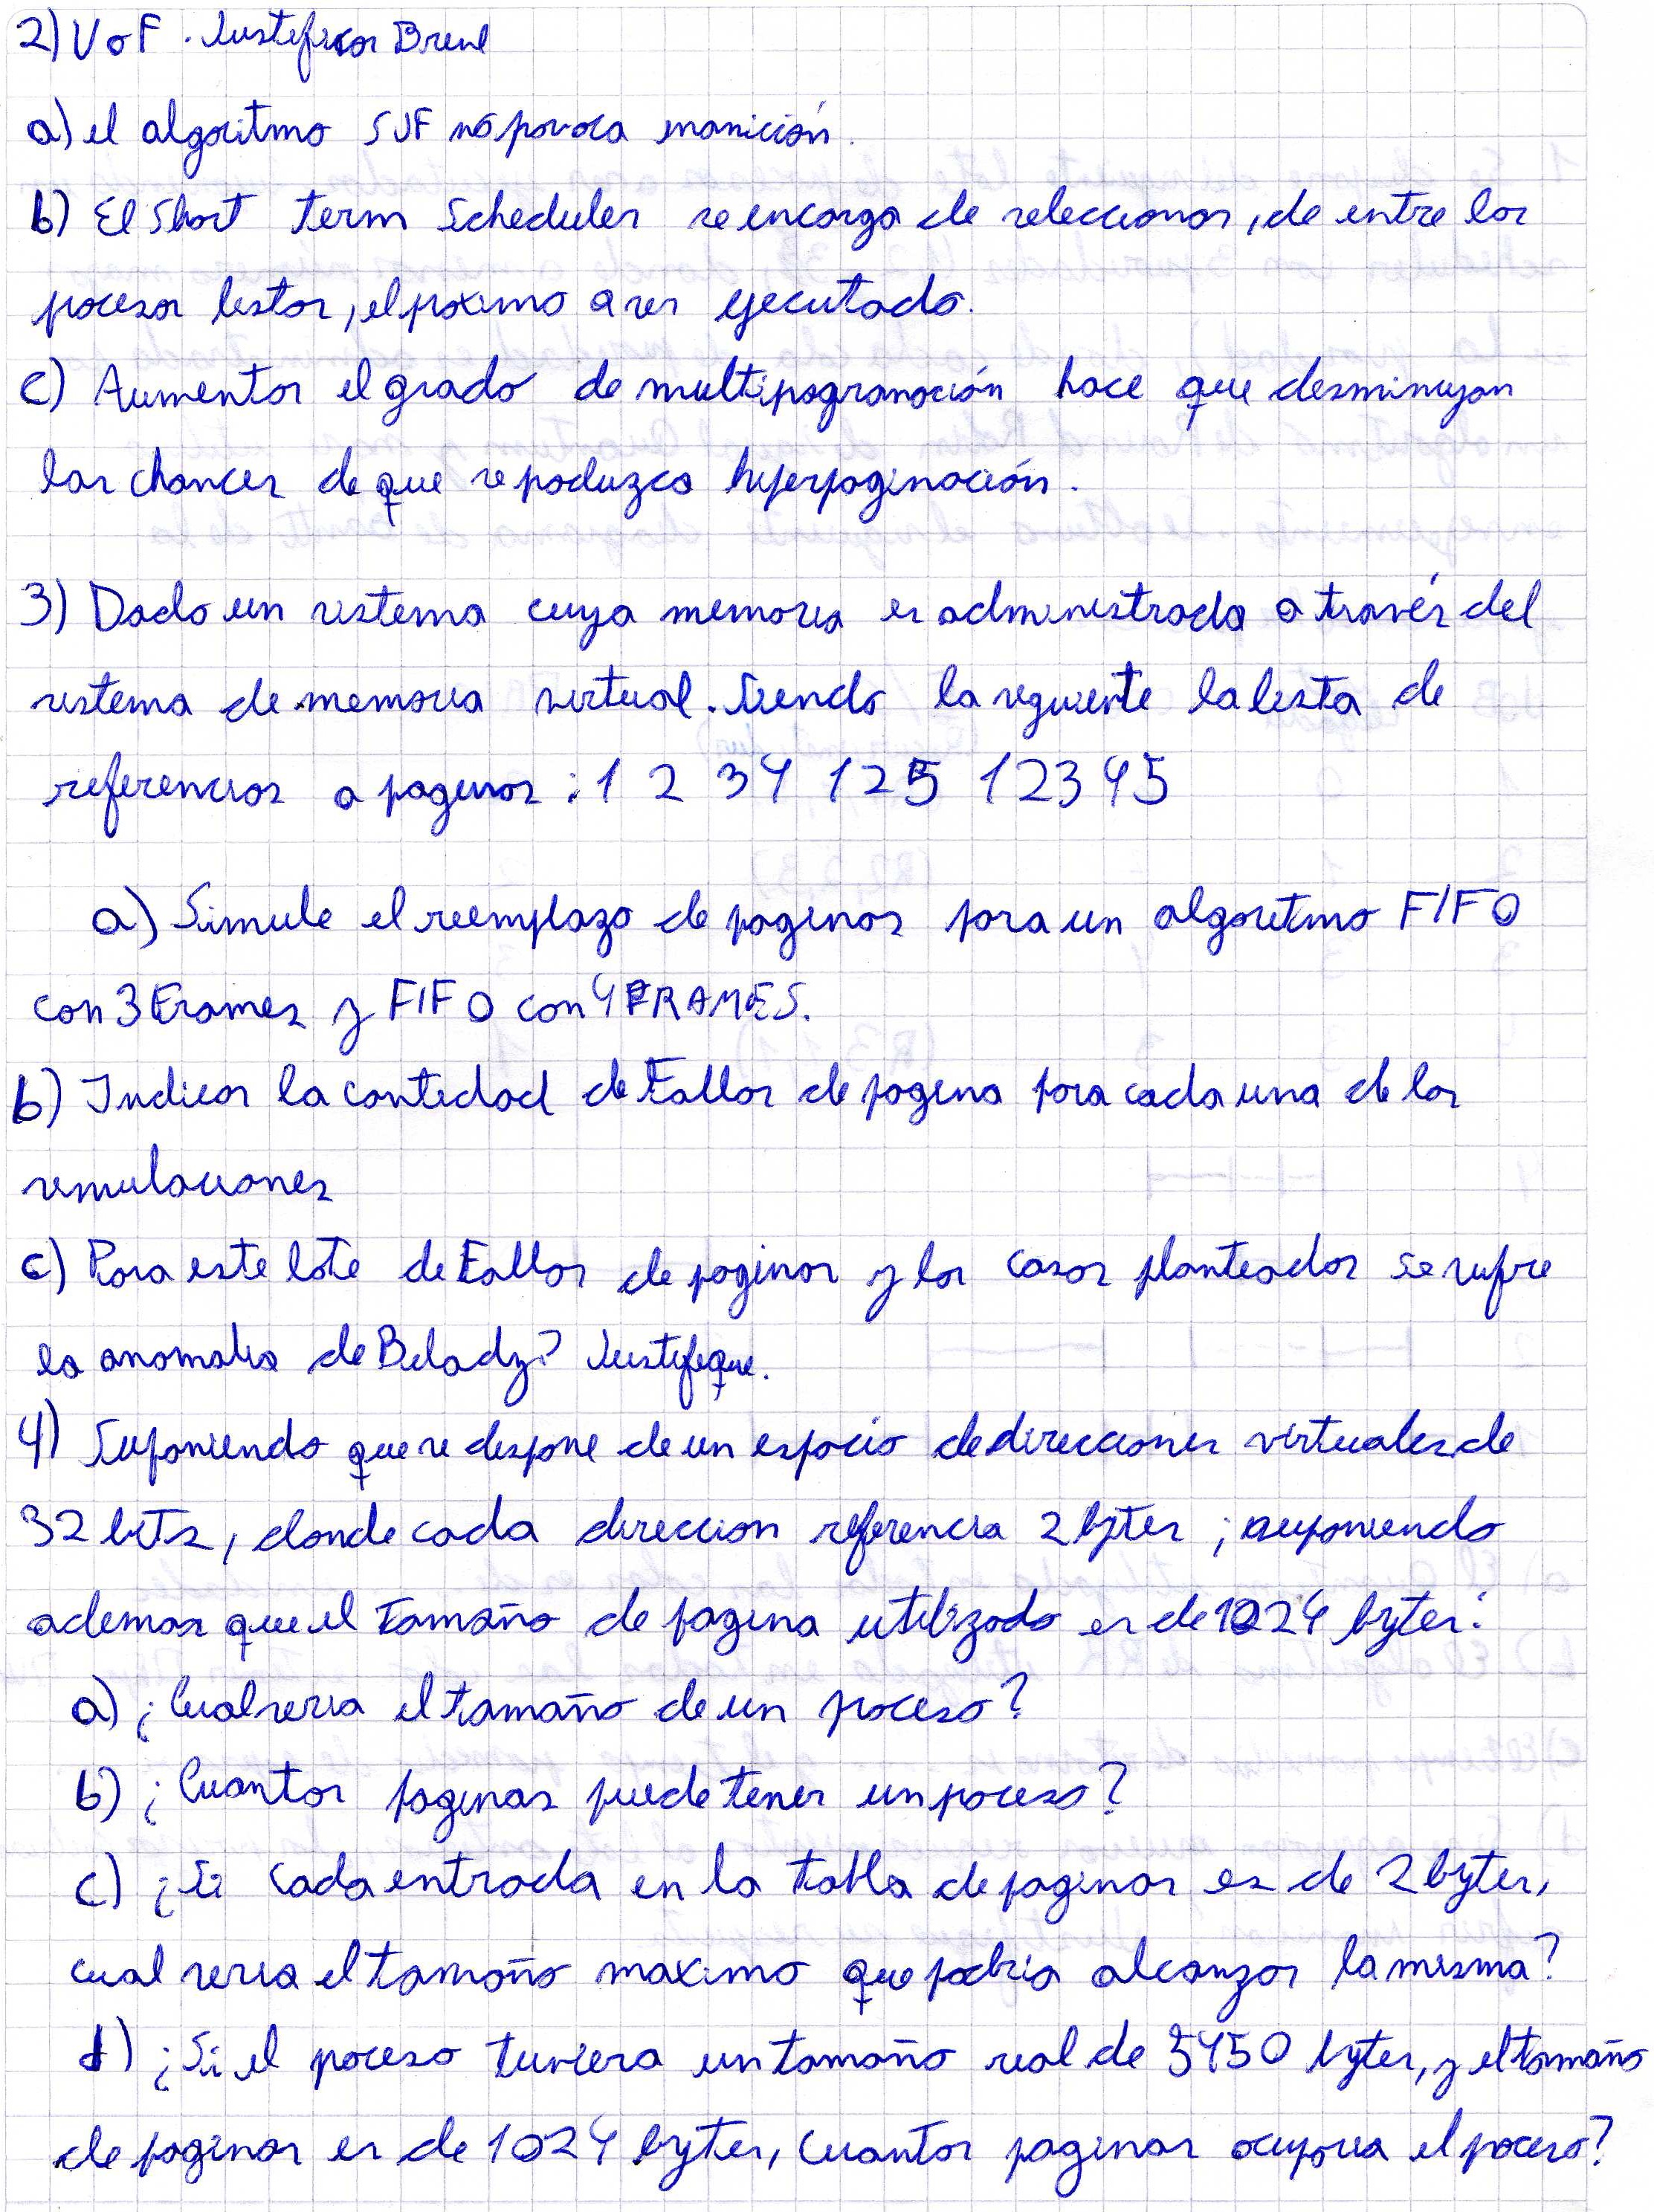 2) V o F . Justificar Breve
a) el algoritmo SJF no provoca inanición.
b) El Short term Scheduler se encarga de seleccionar, de entre los
procesos listos, el proximo a ser ejecutado.
c) Aumentar el grado de multiprogramación hace que desminuyan
las chances de que se produzca hiperpaginación.
3) Dado un sistema cuya memoria es administrada a través del
sistema de memoria virtual. Siendo la siguiente la lista de
referencias a paginas : 1 2 3 4 1 2 5 1 2 3 4 5
a) Simule el reemplazo de paginas para un algoritmo FIFO
con 3 Frames y FIFO con 4 FRAMES.
b) Indicar la cantidad de Fallos de pagina para cada una de las
simulaciones
c) Para este lote de Fallos de paginas y los casos planteados se sufre
la anomalia de Belady? Justifique.
4) Suponiendo que se dispone de un espacio de direcciones virtuales de
32 bits, donde cada direccion referencia 2 bytes ; suponiendo
ademas que el tamaño de pagina utilizado es de 1024 bytes:
a) ¿Cual seria el tamaño de un proceso?
b) ¿Cuantas paginas puede tener un proceso?
c) ¿Si cada entrada en la tabla de paginas es de 2 bytes,
cual seria el tamaño maximo que podria alcanzar la misma?
d) ¿Si el proceso tuviera un tamaño real de 5450 bytes, y el tamaño
de paginas es de 1024 bytes, cuantas paginas ocuparia el proceso?